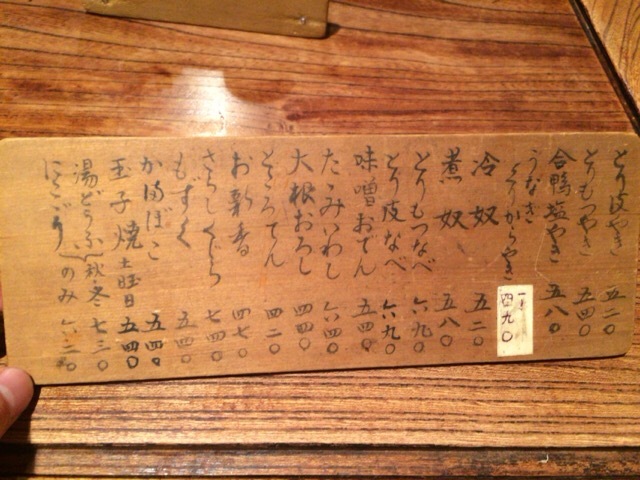 とり皮やき 五二〇
とりもつやき 五四〇
合鴨塩やき 五八〇
うなぎ
くりからやき 一本 四九〇
冷奴 五二〇
煮奴 五八〇
とりもつなべ 六九〇
とり皮なべ 六九〇
味噌おでん 五四〇
たゝみいわし 六四〇
大根おろし 四四〇
ところてん 四二〇
お新香 四七〇
さらしくじら 七四〇
もずく 五四〇
かまぼこ 五四〇
玉子焼 土曜日 五四〇
湯どうふ 秋・冬 七三〇
にこごり のみ 六三〇